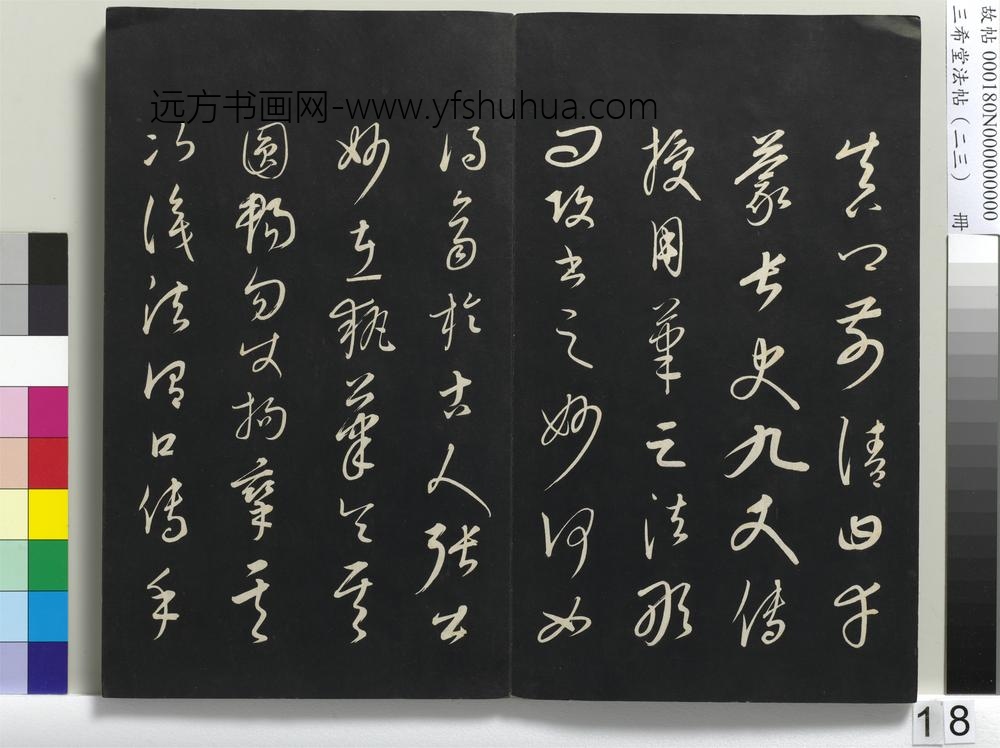 故帖 000180N000000000 冊
三希堂法帖（二三）
远方书画网-www.yfshuhua.com
真卿前請曰幸
蒙長史九丈傳
授用筆之法敢
問攻書之妙何如
得齊於古人張公
妙在執筆令其
圓暢勿使拘攣其
次識法謂口傳手
18